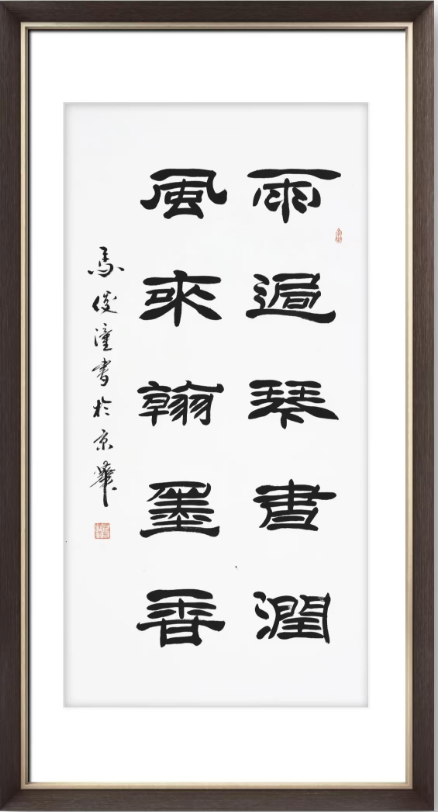 雨過琴書潤
風來翰墨香
馬俊潼書於京華